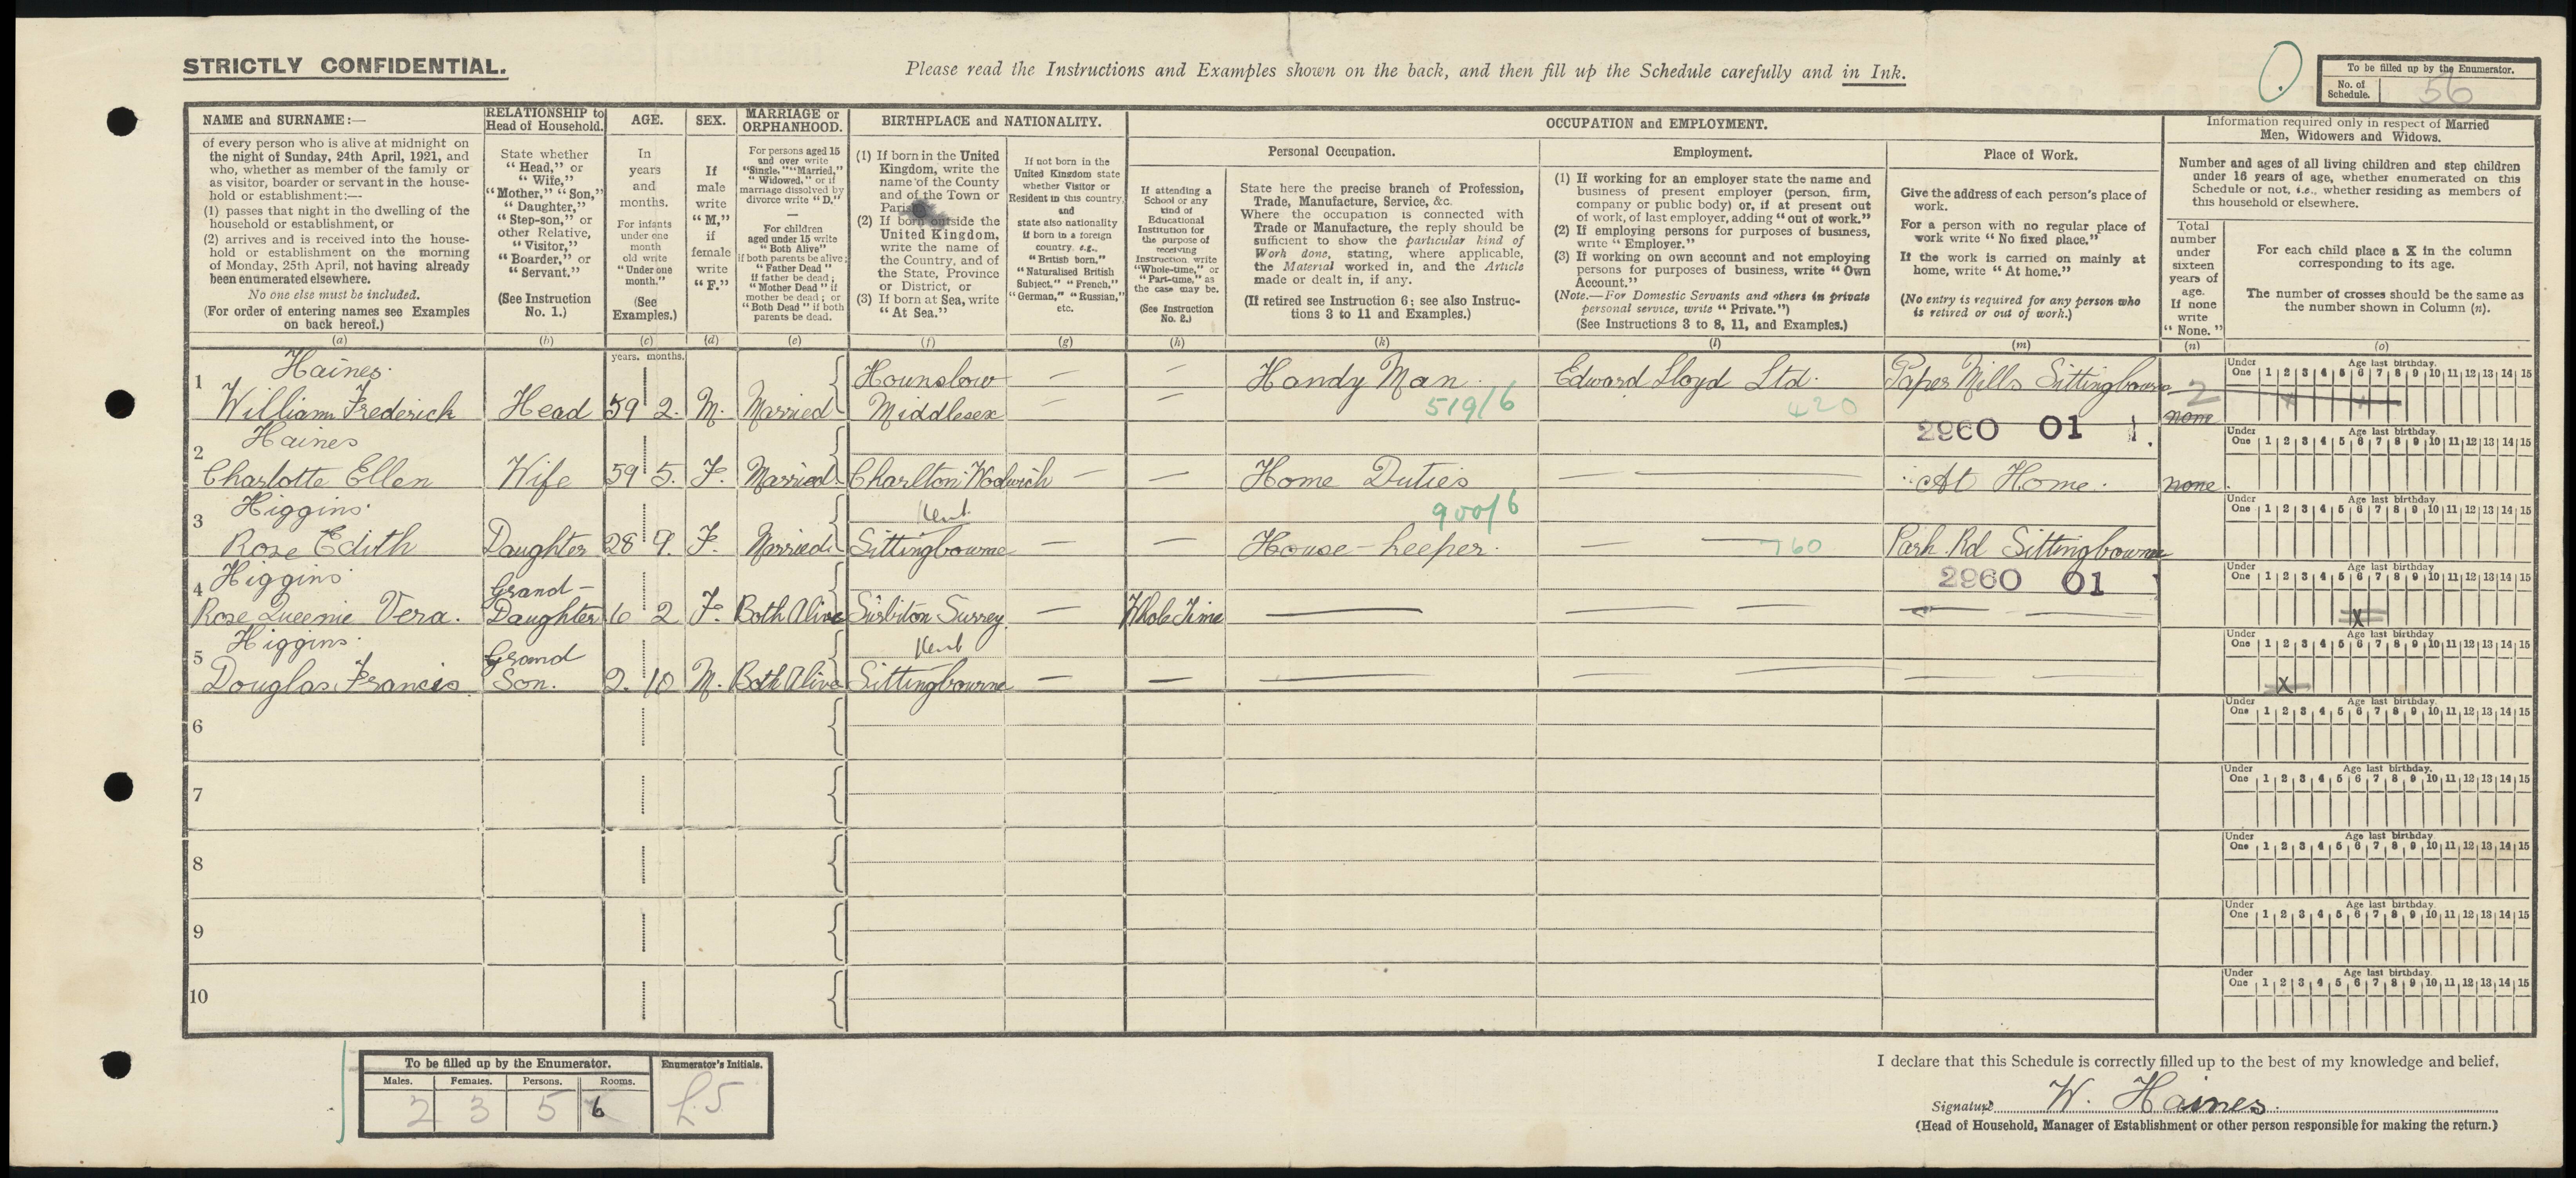 STRICTLY CONFIDENTIAL.
Please read the Instructions and Examples shown on the back, and then fill up the Schedule carefully and in Ink.
To be filled up by the Enumerator.
No. of Schedule. 56
NAME and SURNAME:—
of every person who is alive at midnight on
the night of Sunday, 24th April, 1921, and
who, whether as member of the family or
as visitor, boarder or servant in the house-
hold or establishment:—
(1) passes that night in the dwelling of the
household or establishment, or
(2) arrives and is received into the house-
hold or establishment on the morning
of Monday, 25th April, not having already
been enumerated elsewhere.
No one else must be included.
(For order of entering names see Examples
on back hereof.)
(a)
RELATIONSHIP to
Head of Household.
State whether
“Head,” or
“Wife,”
“Mother,” “Son,”
“Daughter,”
“Step-son,” or
other Relative,
“Visitor,”
“Boarder,” or
“Servant.”
(See Instruction
No. 1.)
(b)
AGE.
In
years
and
months.
For infants
under one
month
old write
“Under one
month.”
(See
Examples.)
(c)
SEX.
If
male
write
“M,”
if
female
write
“F.”
(d)
MARRIAGE or
ORPHANHOOD.
For persons aged 15
and over write
“Single,” “Married,”
“Widowed,” or if
marriage dissolved by
divorce write “D.”
—
For children
aged under 15 write
“Both Alive”
if both parents be alive;
“Father Dead”
if father be dead;
“Mother Dead” if
mother be dead; or
“Both Dead” if both
parents be dead.
(e)
BIRTHPLACE and NATIONALITY.
(1) If born in the United
Kingdom, write the
name of the County
and of the Town or
Parish.
(2) If born outside the
United Kingdom,
write the name of
the Country, and of
the State, Province
or District, or
(3) If born at Sea, write
“At Sea.”
(f)
If not born in the
United Kingdom state
whether Visitor or
Resident in this country,
and
state also nationality
if born in a foreign
country. e.g.,
“British born.”
“Naturalised British
Subject,” “French,”
“German,” “Russian,”
etc.
(g)
OCCUPATION and EMPLOYMENT.
If attending a
School or any
kind of
Educational
Institution for
the purpose of
receiving
Instruction write
“Whole-time,” or
“Part-time,” as
the case may be.
(See Instruction
No. 2.)
(h)
Personal Occupation.
State here the precise branch of Profession,
Trade, Manufacture, Service, &c.
Where the occupation is connected with
Trade or Manufacture, the reply should be
sufficient to show the particular kind of
Work done, stating, where applicable,
the Material worked in, and the Article
made or dealt in, if any.
(If retired see Instruction 6; see also Instruc-
tions 3 to 11 and Examples.)
(k)
Employment.
(1) If working for an employer state the name and
business of present employer (person, firm,
company or public body) or, if at present out
of work, of last employer, adding “out of work.”
(2) If employing persons for purposes of business,
write “Employer.”
(3) If working on own account and not employing
persons for purposes of business, write “Own
Account.”
(Note.—For Domestic Servants and others in private
personal service, write “Private.”)
(See Instructions 3 to 8, 11, and Examples.)
(l)
Place of Work.
Give the address of each person’s place of
work.
For a person with no regular place of
work write “No fixed place.”
If the work is carried on mainly at
home, write “At home.”
(No entry is required for any person who
is retired or out of work.)
(m)
Information required only in respect of Married
Men, Widowers and Widows.
Number and ages of all living children and step children
under 16 years of age, whether enumerated on this
Schedule or not, i.e., whether residing as members of
this household or elsewhere.
Total
number
under
sixteen
years of
age.
If none
write
“None.”
(n)
For each child place a X in the column
corresponding to its age.
The number of crosses should be the same as
the number shown in Column (n).
(o)
years. months.
1 Haines.
William Frederick Head 59 2. M. Married Hounslow Middlesex — — Handy Man. 519/6 Edward Lloyd Ltd. 420 Paper Mills Sittingbourne 2960 01 2 none
Under One 1 2 3 4 5 6 7 8 9 10 11 12 13 14 15 Age last birthday.
2 Haines
Charlotte Ellen Wife 59 5. F. Married Charlton Woolwich — — Home Duties — At Home. none
Under One 1 2 3 4 5 6 7 8 9 10 11 12 13 14 15 Age last birthday.
3 Higgins.
Rose Edith Daughter 28 9. F. Married Kent Sittingbourne — — House-keeper. 900/6 — 760 Park Rd Sittingbourne 2960 01
Under One 1 2 3 4 5 6 7 8 9 10 11 12 13 14 15 Age last birthday.
4 Higgins.
Rose Queenie Vera. Grand-Daughter 6 2 F. Both Alive Surbiton Surrey. — Whole Time — — — X
Under One 1 2 3 4 5 6 7 8 9 10 11 12 13 14 15 Age last birthday.
5 Higgins.
Douglas Francis. Grand Son. 2. 10 M. Both Alive Kent Sittingbourne — — — — — X
Under One 1 2 3 4 5 6 7 8 9 10 11 12 13 14 15 Age last birthday.
6
Under One 1 2 3 4 5 6 7 8 9 10 11 12 13 14 15 Age last birthday.
7
Under One 1 2 3 4 5 6 7 8 9 10 11 12 13 14 15 Age last birthday.
8
Under One 1 2 3 4 5 6 7 8 9 10 11 12 13 14 15 Age last birthday.
9
Under One 1 2 3 4 5 6 7 8 9 10 11 12 13 14 15 Age last birthday.
10
Under One 1 2 3 4 5 6 7 8 9 10 11 12 13 14 15 Age last birthday.
To be filled up by the Enumerator. Enumerator’s Initials.
Males. Females. Persons. Rooms.
2 3 5 6
I declare that this Schedule is correctly filled up to the best of my knowledge and belief,
Signature W. Haines.
(Head of Household, Manager of Establishment or other person responsible for making the return.)